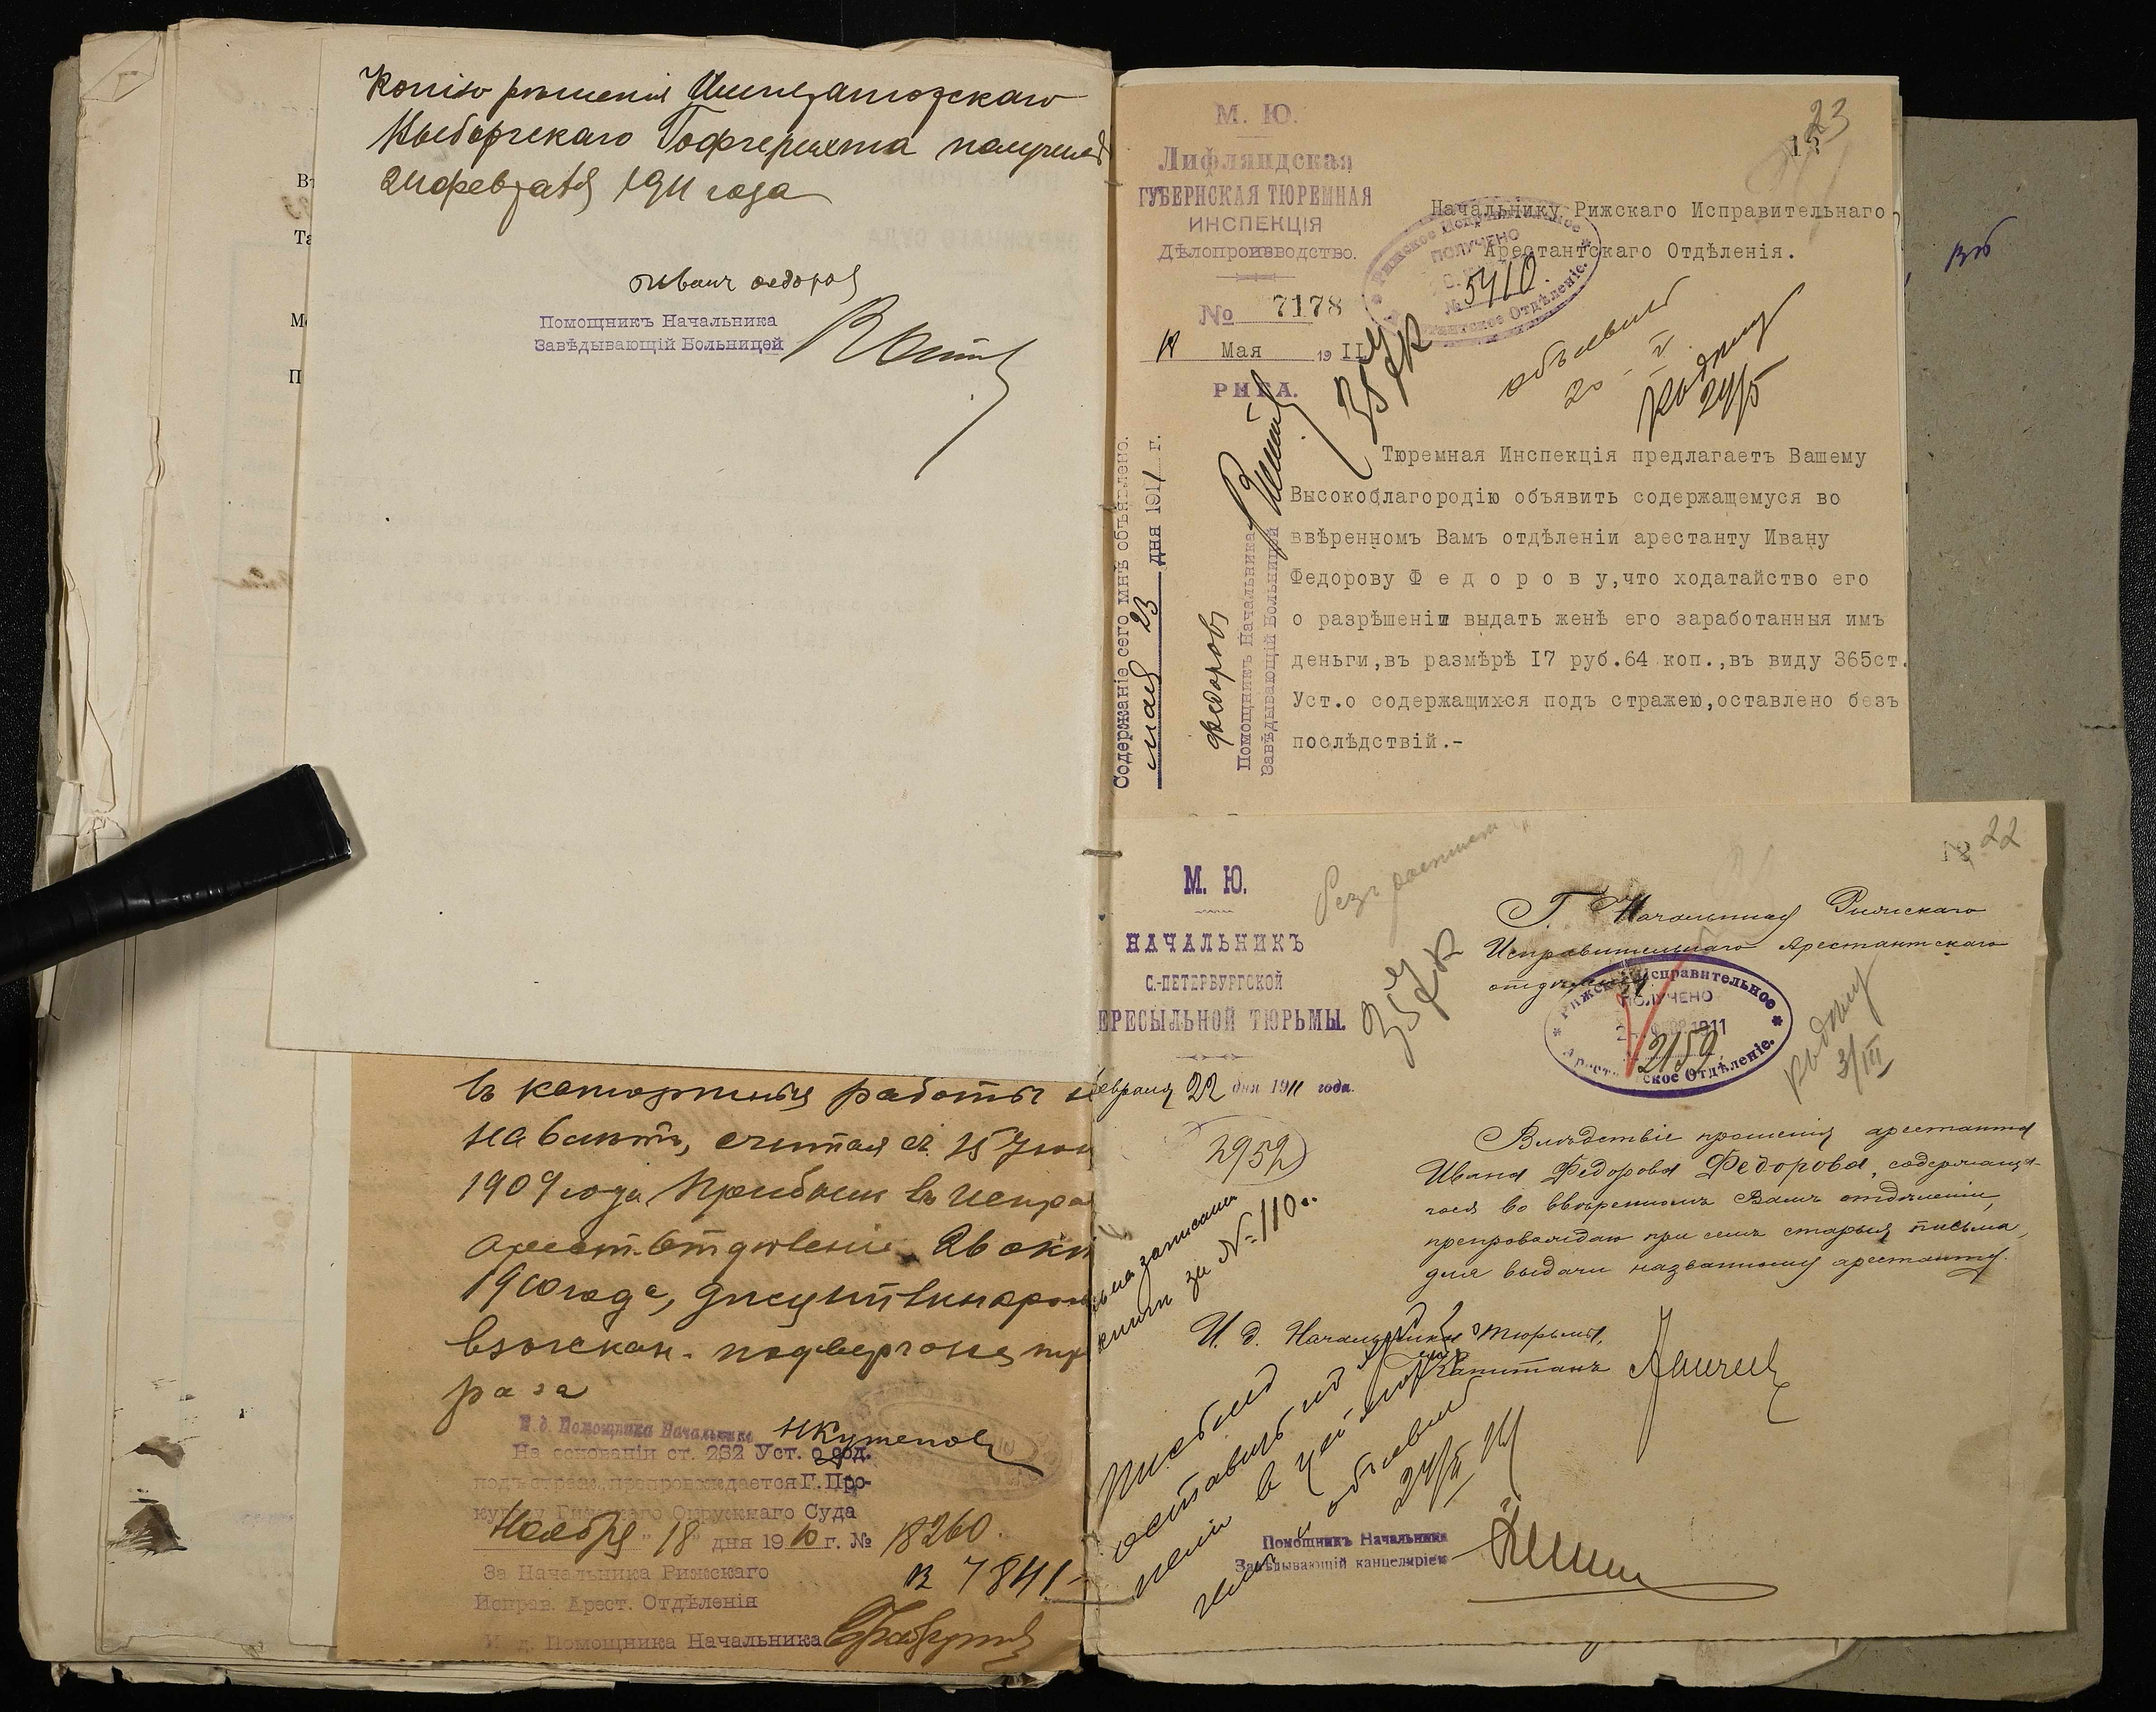 Копію рѣшенія Императорскаго
Выборгскаго Гофгерихта получилъ
24 февраля 1911 года
Иванъ Федоров
Помощникъ Начальника
Завѣдывающій Больницей
въ каторжныя работы
на 6 лѣтъ, считая съ 15
1909 года. Прибылъ въ испра
арест. отдѣленіе 26 окт
1910 года, дисциплинарн
взыскан. подвергался
раза
И. д. Помощника Начальника
На основаніи ст. 262 Уст. о сод.
подъ страж. препровождается Г. Про-
курору Рижскаго Окружнаго Суда
Ноября "18" дня 1910 г. № 18260.
За Начальника Рижскаго
Исправ. Арест. Отдѣленія
7841
И. д. Помощника Начальника
М. Ю.
Лифляндская
ГУБЕРНСКАЯ ТЮРЕМНАЯ
ИНСПЕКЦІЯ
Дѣлопроизводство.
№ 7178
18 Мая 1911
РИГА.
23
Начальнику Рижскаго Исправительнаго
Арестантскаго Отдѣленія.
Рижское Исправительное
ПОЛУЧЕНО
№ 5410.
Арестантское Отдѣленіе.
Тюремная Инспекція предлагаетъ Вашему
Высокоблагородію объявить содержащемуся во
ввѣренномъ Вамъ отдѣленіи арестанту Ивану
Федорову Ф е д о р о в у,что ходатайство его
о разрѣшеніи выдать женѣ его заработанныя имъ
деньги,въ размѣрѣ I7 руб.64 коп.,въ виду 365ст.
Уст.о содержащихся подъ стражею,оставлено безъ
послѣдствій.-
Содержаніе сего мнѣ объявлено.
мая 23 дня 1911 г.
Федоровъ
Помощникъ Начальника
Завѣдывающій Больницей
22
М. Ю.
НАЧАЛЬНИКЪ
С.-ПЕТЕРБУРГСКОЙ
ЕРЕСЫЛЬНОЙ ТЮРЬМЫ.
евраля 22 дня 1911 года.
2952
Г. Начальнику Рижскаго
Исправительнаго Арестантскаго
отдѣленія.
Рижское Исправительное
ПОЛУЧЕНО
1911
2159
Арестантское Отдѣленіе.
3/III
Вслѣдствіе прошенія арестанта
Ивана Федорова Федорова, содержаща-
гося во ввѣренномъ Вамъ отдѣленіи,
препровождаю при семъ старыя письма,
для выдачи названному арестанту.
записаны
книги за № 110
И. д. Начальника тюрьмы,
Капитанъ
Помощникъ Начальника
Завѣдывающій канцеляріею